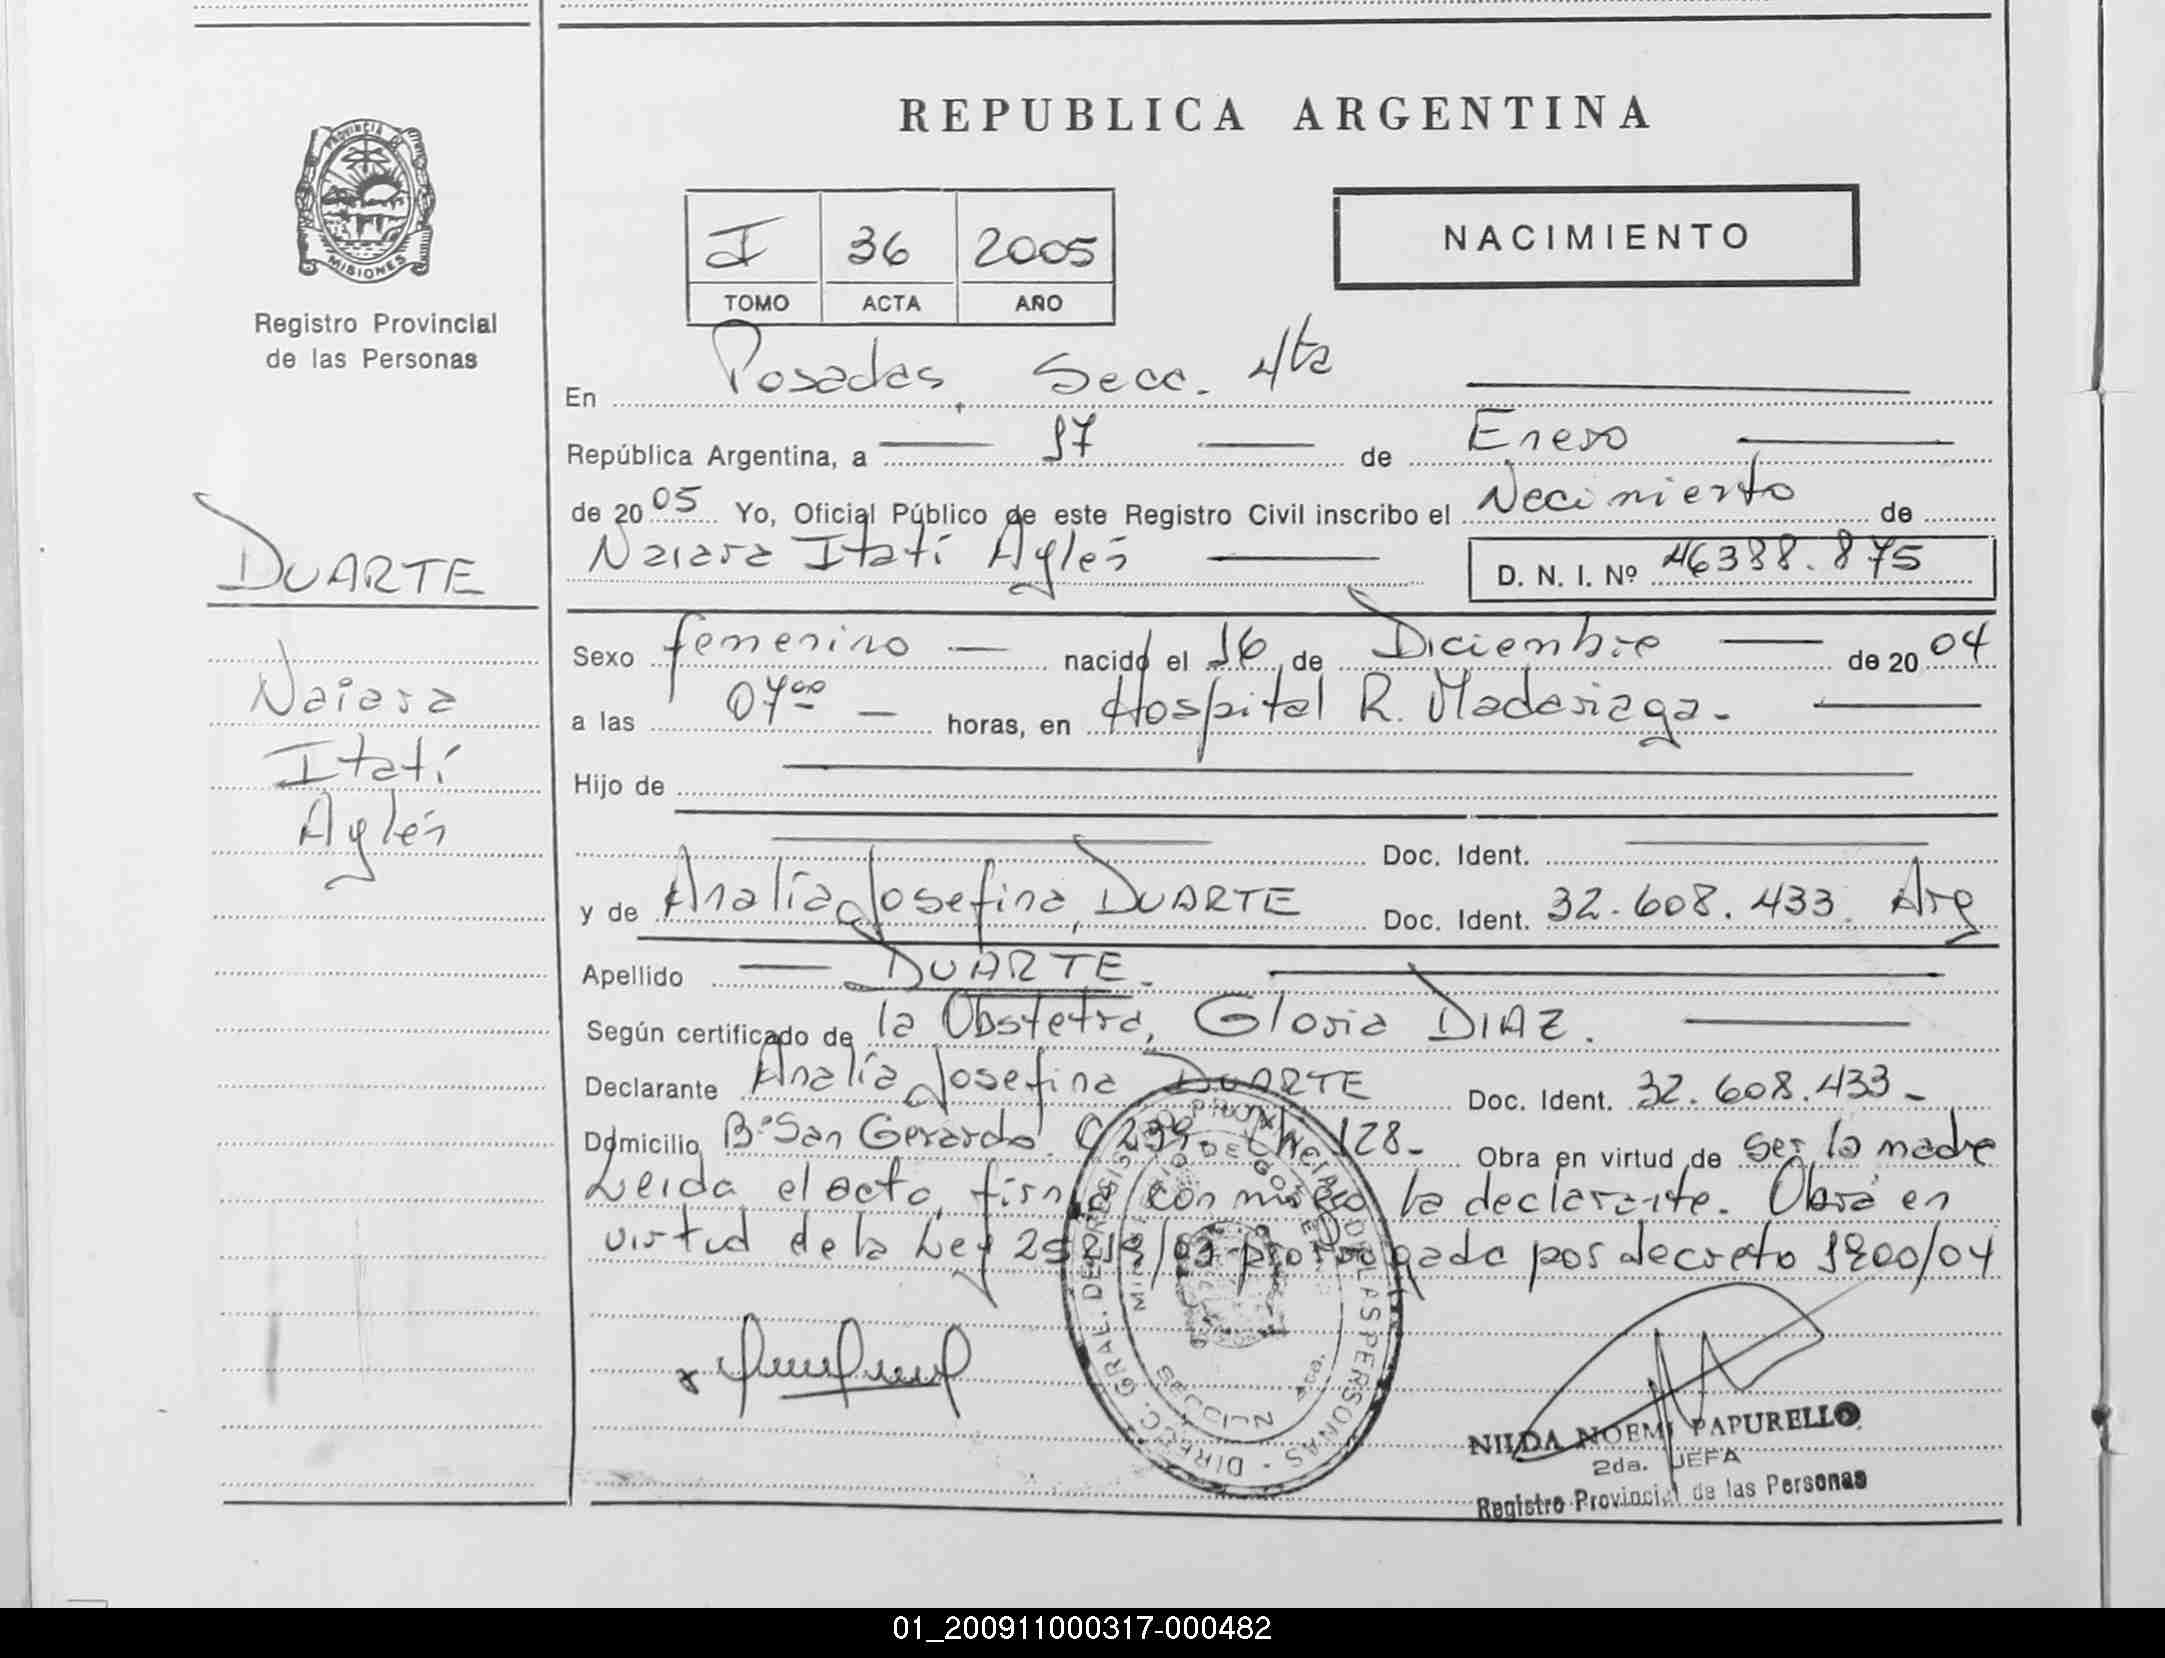 REPUBLICA ARGENTINA
PROVINCIA DE
MISIONES
Registro Provincial
de las Personas
I 36 2005
TOMO ACTA AÑO
NACIMIENTO
En Posadas, Secc. 4ta
República Argentina, a 17 de Enero
de 2005 Yo, Oficial Público de este Registro Civil inscribo el Nacimiento de
Naiara Itatí Aylén D. N. I. Nº 46388.875
DUARTE
Naiara
Itatí
Aylén
Sexo femenino nacido el 16 de Diciembre de 2004
a las 07 00 horas, en Hospital R. Madariaga.
Hijo de
Doc. Ident.
y de Analía Josefina DUARTE Doc. Ident. 32.608.433. Arg
Apellido DUARTE.
Según certificado de la Obstetra, Gloria DIAZ.
Declarante Analía Josefina DUARTE Doc. Ident. 32.608.433
Domicilio Bº San Gerardo. C 239. Ch 128 Obra en virtud de ser la madre
Leida el acta, firma con migo la declarante. Obra en
virtud de la Ley prorrogada por decreto 1900/04
DIRECC. GRAL. DEL REGISTRO PROVINCIAL DE LAS PERSONAS
NILDA NOEMI PAPURELLO
2da. JEFA
Registro Provincial de las Personas
01_200911000317-000482